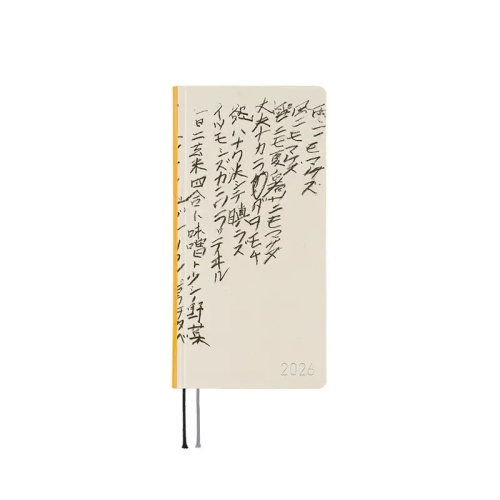 雨ニモマケズ
風ニモマケズ
雪ニモ夏ノ暑サニモマケヌ
丈夫ナカラダヲモチ
慾ハナク決シテ瞋ラズ
イツモシヅカニワラッテヰル
一日ニ玄米四合ト味噌ト少シノ野菜
ヲタベ
2026